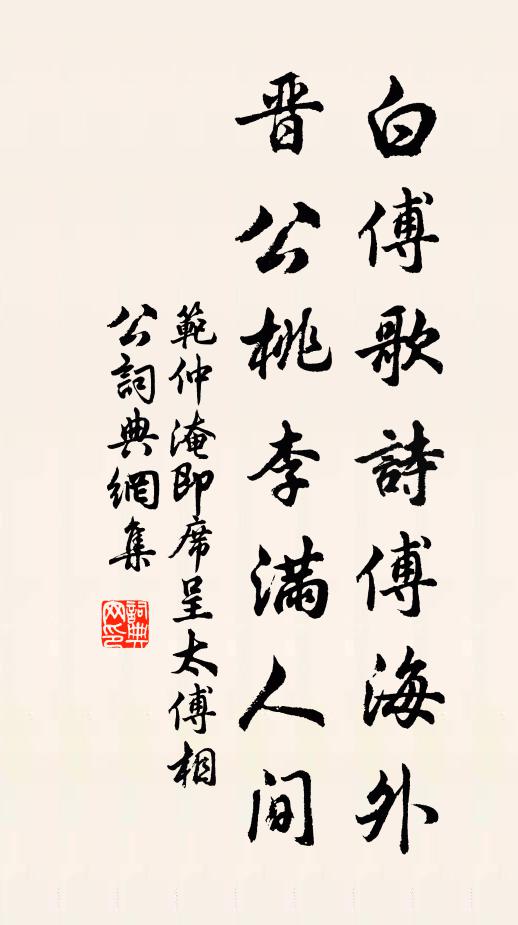 白傅歌詩傅海外
晋公桃李满人间
範仲淹即席呈太傅相
公詞典網集
詞典网印